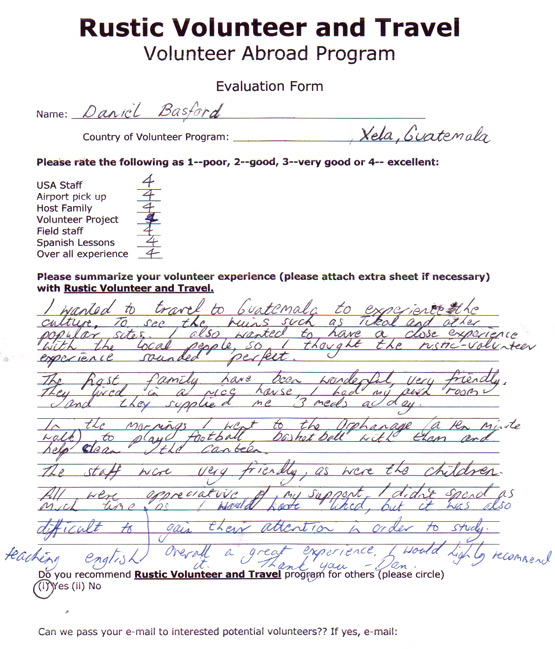 Rustic Volunteer and Travel
Volunteer Abroad Program
Evaluation Form
Name: Daniel Basford
Country of Volunteer Program: Xela, Guatemala
Please rate the following as 1--poor, 2--good, 3--very good or 4-- excellent:
USA Staff 4
Airport pick up 4
Host Family 4
Volunteer Project 4
Field staff 4
Spanish Lessons 4
Over all experience 4
Please summarize your volunteer experience (please attach extra sheet if necessary)
with Rustic Volunteer and Travel.
I wanted to travel to Guatemala to experience the
culture, To see the ruins such as Tikal and other
popular sites, I also wanted to have a close experience
with the local people, so I thought the rustic-volunteer
experience sounded perfect.
The host family have been wonderful, very friendly.
They lived in a nice house, I had my own room
and they supplied me 3 meds a day.
In the mornings I went to the Orphanage (a ten minute
walk) to play football, basketball with them and
help clean the canteen.
The staff were very friendly, as were the children.
All were appreciative of my support, I didn't spend as
much time as I would have liked, but it was also
difficult to gain their attention in order to study.
teaching english
Overall a great experience, I would highly recommend
it. Thank you - Dan.
Do you recommend Rustic Volunteer and Travel program for others (please circle)
(i) Yes (ii) No
Can we pass your e-mail to interested potential volunteers?? If yes, e-mail: